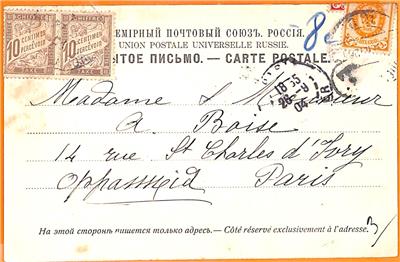 ВСЕМІРНЫЙ ПОЧТОВЫЙ СОЮЗЪ. РОССІЯ.
UNION POSTALE UNIVERSELLE RUSSIE.
ЫТОЕ ПИСЬМО. — CARTE POSTALE.
CHIFFRE CHIFFRE
10 CENTIMES À PERCEVOIR 10 CENTIMES À PERCEVOIR
TAXE TAXE
8
18 35
26 - 9
04
Madame & Monsieur
A. Boise
14 rue St Charles d'Ivry
Paris
3
На этой сторонѣ пишется только адресъ. — Côté réservé exclusivement à l'adresse.